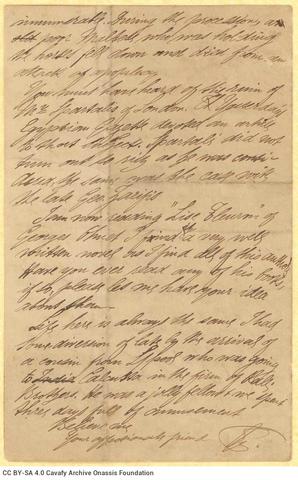 innumerable. During the procession, an
old poor Maltese, who was holding
the horses fell down and died from an
attack of apoplexy.
You must have heard of the ruin of
Mr Spartalis of London. Yesterday's
Egyptian Gazette devoted an article
to that subject. Spartali did not
turn out so rich as he was consi-
dered, the same was the case with
the late Geo.
I am now reading "Lise Fleuron" of
Georges Ohnet. I find it a very well
written novel as I find all of this author.
Have you ever read any of his books,
if so, please let me have your idea
about them.
Life here is always the same. I had
some diversion of late by the arrival of
a cousin from L'pool who was going
to Calcutta in the firm of Ralli
Brothers. He was a jolly fellow & we spent
three days full of amusement
Believe me
Your affectionate friend
CC BY-SA 4.0 Cavafy Archive Onassis Foundation